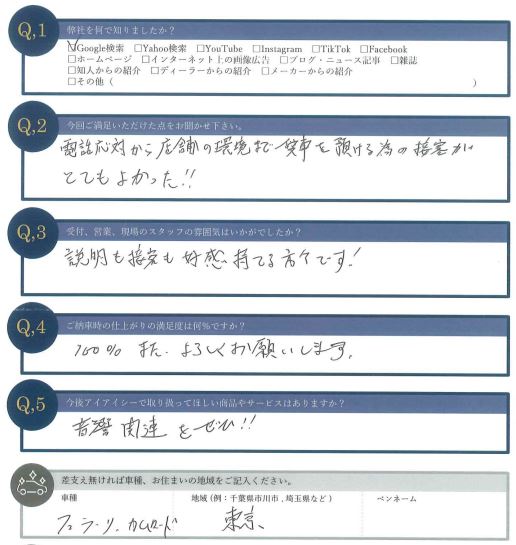 Q,1
弊社を何で知りましたか？
☑Google検索 □Yahoo検索 □YouTube □Instagram □TikTok □Facebook
□ホームページ □インターネット上の画像広告 □ブログ・ニュース記事 □雑誌
□知人からの紹介 □ディーラーからの紹介 □メーカーからの紹介
□その他（ ）
Q,2
今回ご満足いただけた点をお聞かせ下さい。
電話応対から店舗の環境まで 愛車を預ける為の接客が
とてもよかった!!
Q,3
受付、営業、現場のスタッフの雰囲気はいかがでしたか？
説明も接客も好感持てる方々です!
Q,4
ご納車時の仕上がりの満足度は何%ですか？
100% また よろしくお願いします。
Q,5
今後アイアイシーで取り扱ってほしい商品やサービスはありますか？
音響関連をぜひ!!
差支え無ければ車種、お住まいの地域をご記入ください。
車種 地域 (例：千葉県市川市 , 埼玉県など) ペンネーム
フェラーリ、カムロード 東京